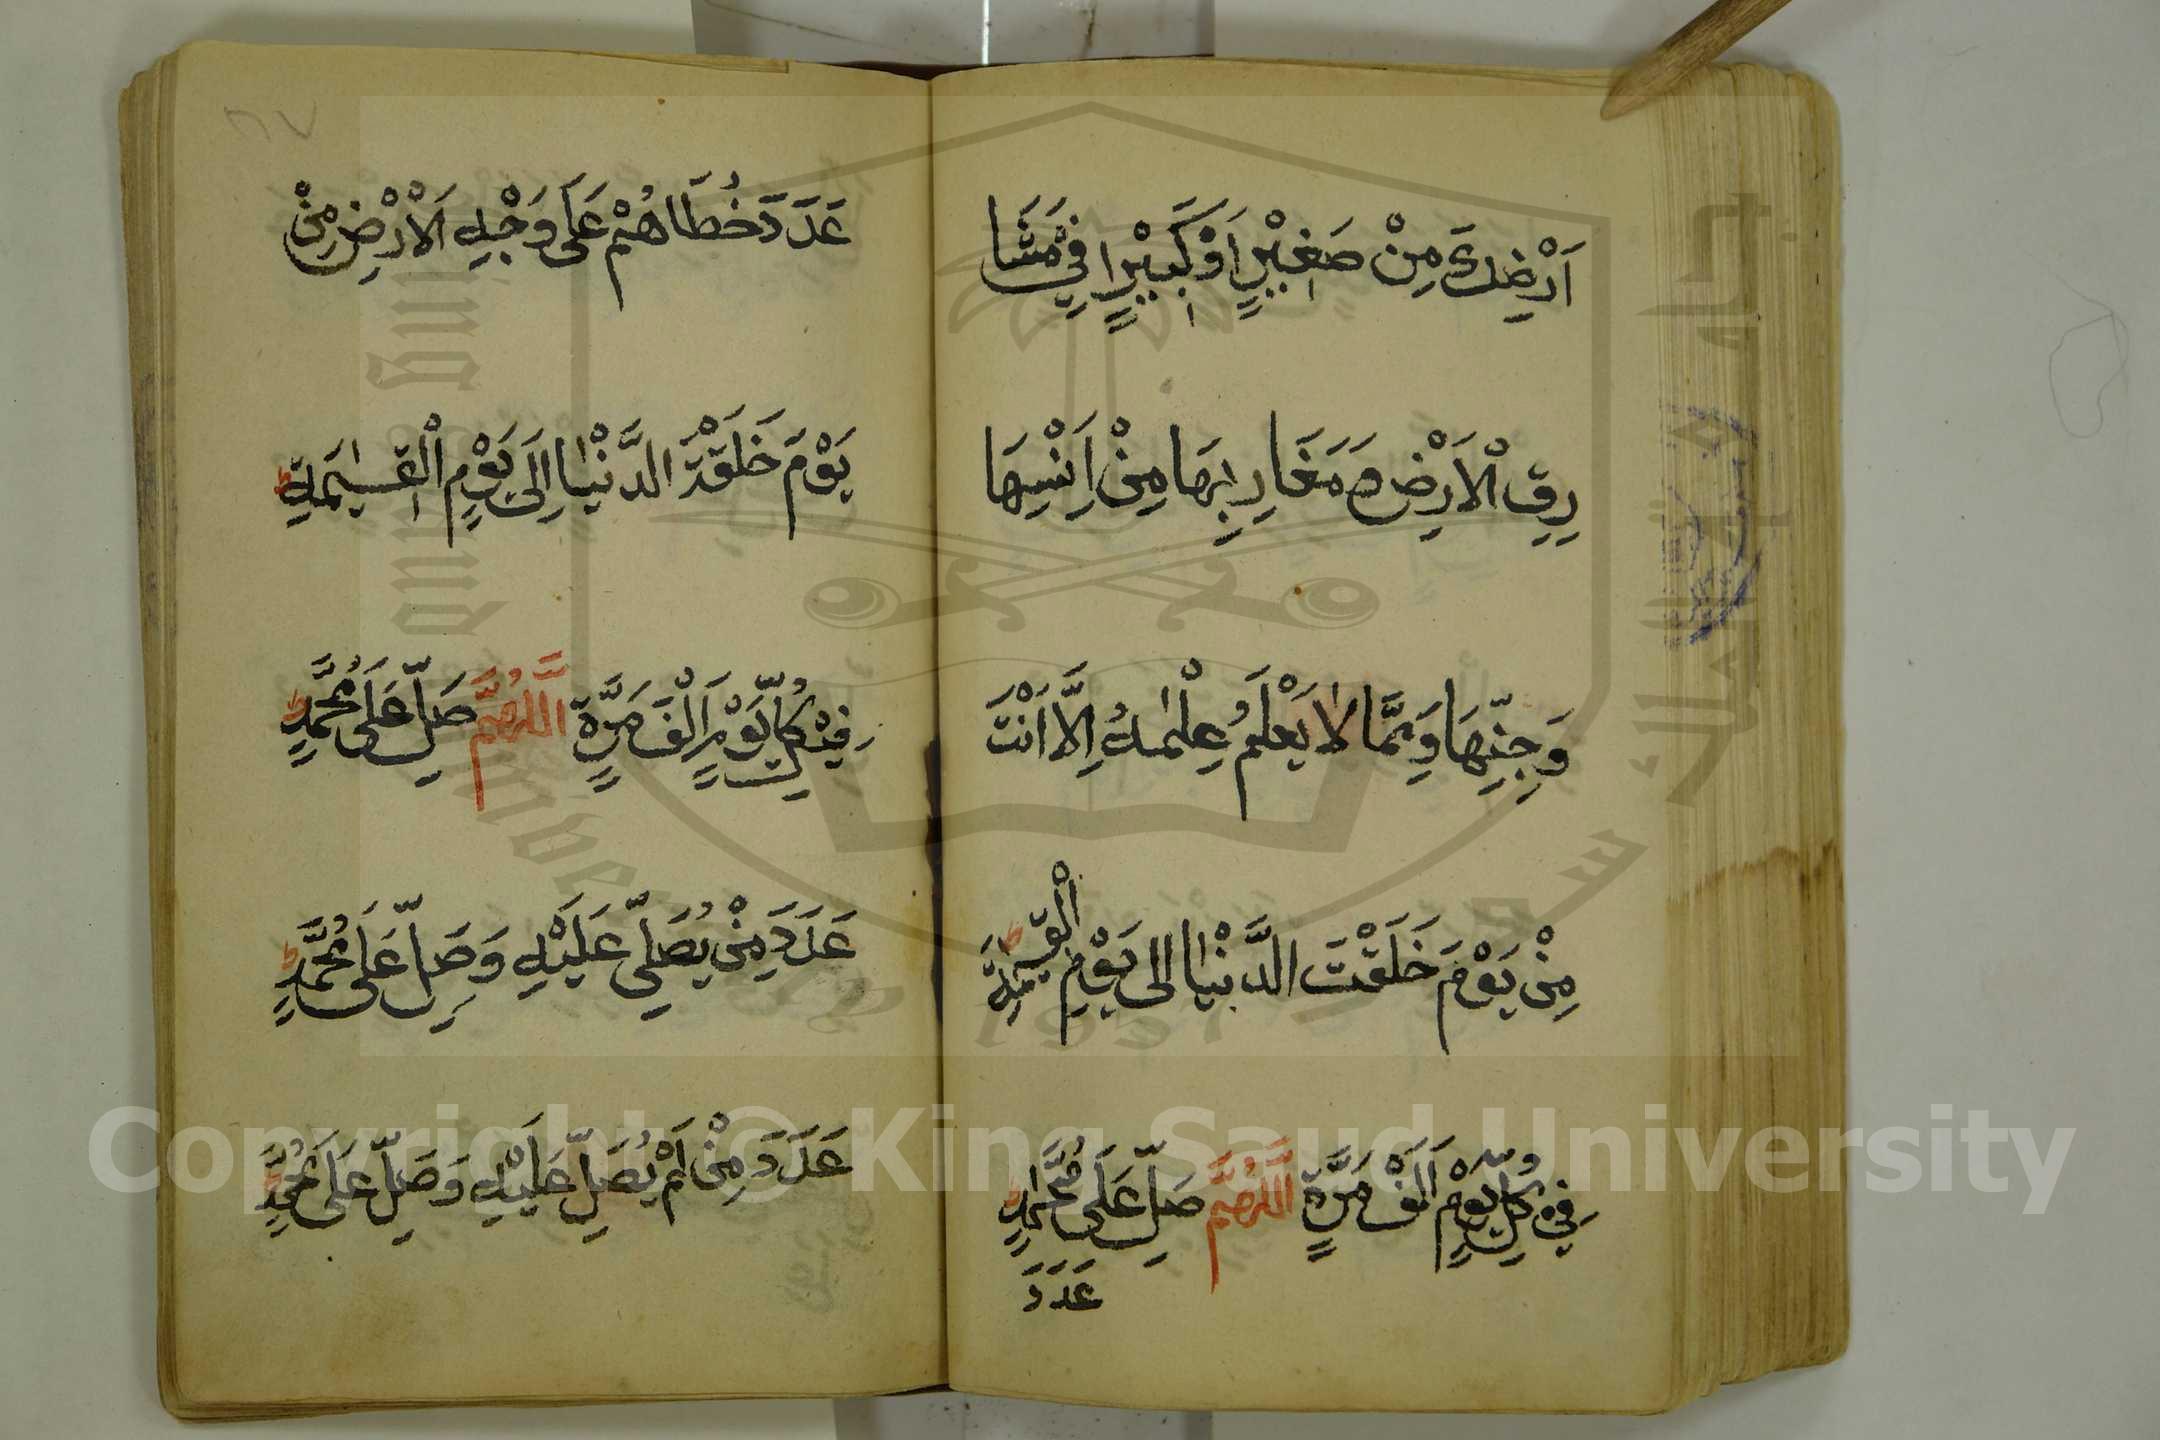 اَرْضِكَ مِنْ صَغِيْرٍ اَوْ كَبِيْرٍ فِيْ مَشَا
رِقِ الْاَرْضِ وَمَغَارِبِهَا مِنْ اِنْسِهَا
وَجِنِّهَا وَمِمَّا لَا يَعْلَمُ عِلْمَهُ اِلَّا اَنْتَ
مِنْ يَوْمَ خَلَقْتَ الدُّنْيَا اِلٰى يَوْمِ الْقِيٰمَةِ
فِيْ كُلِّ يَوْمٍ اَلْفَ مَرَّةٍ اَللّٰهُمَّ صَلِّ عَلَى مُحَمَّدٍ
عَدَدَ
٦٧
عَدَدَ خُطَاهُمْ عَلٰى وَجْهِ الْاَرْضِ مِنْ
يَوْمَ خَلَقْتَ الدُّنْيَا اِلٰى يَوْمِ الْقِيٰمَةِ
فِيْ كُلِّ يَوْمٍ اَلْفَ مَرَّةٍ اَللّٰهُمَّ صَلِّ عَلَى مُحَمَّدٍ
عَدَدَ مَنْ يُصَلِّيْ عَلَيْهِ وَصَلِّ عَلَى مُحَمَّدٍ
عَدَدَ مَنْ لَمْ يُصَلِّ عَلَيْهِ وَصَلِّ عَلَى مُحَمَّدٍ
Copyright © King Saud University